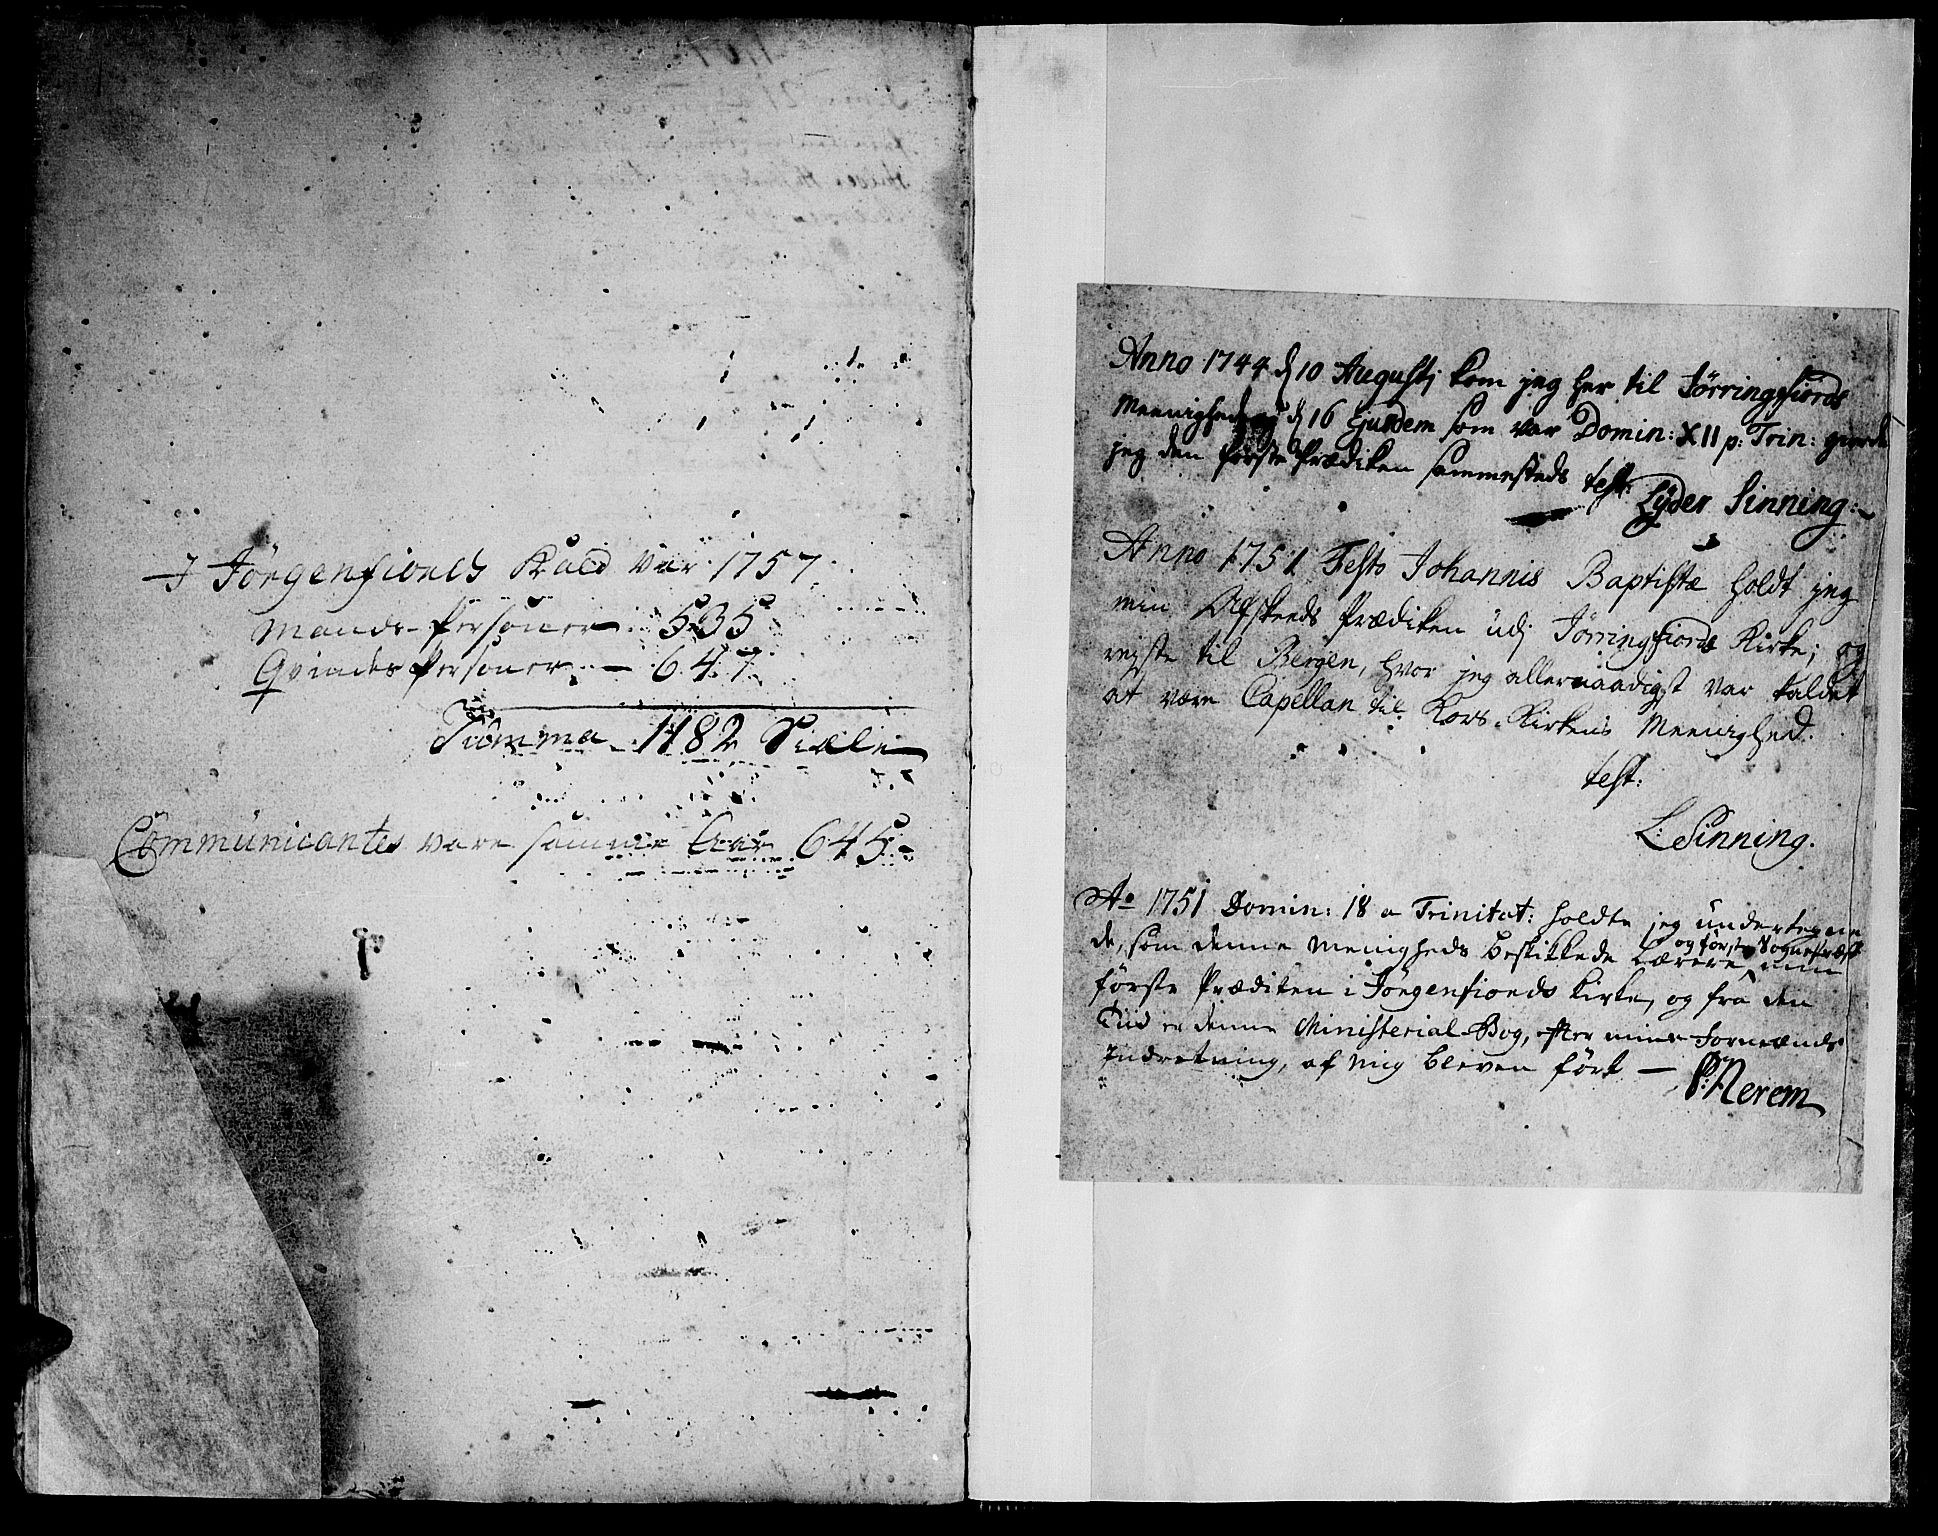 I Jörgenfiords Kald var 1757
Mands-Persöner — 535
Qvindes Persöner. — 647
Summa 1182 Siæle
Communicantes vare samme Aar 645
Anno 1744 d 10 Augusti kom jeg her til Jørringfiords
Meenighed og d 16 Ejusdem som var Domin: XII p: Trin: giorde
jeg den første Prædiken sammesteds test:
Lÿder Sinning:
Anno 1751 Festo Johannis Baptistæ holdt jeg
min Afskeeds Prædiken udj Jørringfiords Kirke; og
rejste til Bergen, hvor jeg allernaadigst var kaldet
at være Capellan til Kors-Kirkens Meenighed.
test:
L: Sinning.
Ao 1751 Domin: 18 a Trinitat: holdte jeg undertegne
de, som denne Menigheds beskikkede Lærere og første Sognepræst min
förste Prædiken i Jörgenfiords Kirke, og fra den
Tiid er denne Ministerial-Bog, efter min Formands
Indretning, af mig bleven fört —
P: Nerem